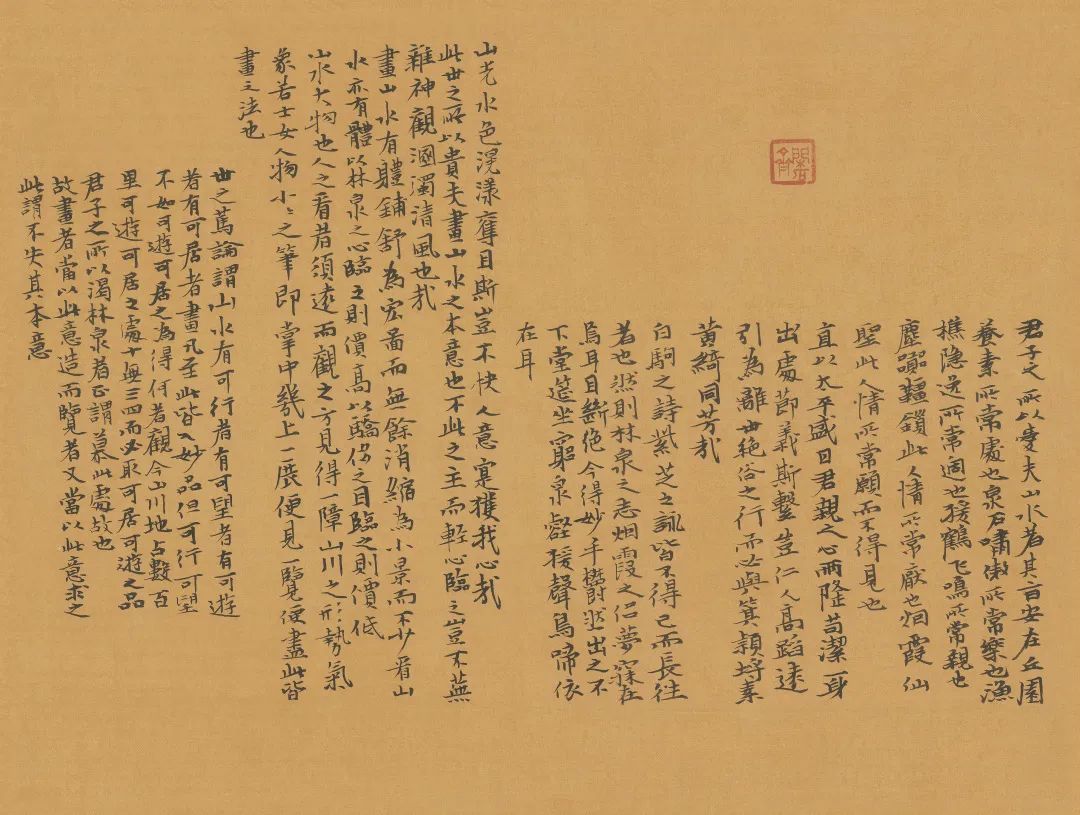 君子之所以愛夫山水者其旨安在丘園
養素所常處也泉石嘯傲所常樂也漁
樵隱逸所常適也猨鶴飞鳴所常親也
塵囂韁鎖此人情所常厭也烟霞仙
聖此人情所常願而不得見也
直以太平盛日君親之心兩隆苟潔一身
出處節義斯繫豈仁人高蹈遠
引為離世絕俗之行而必與箕潁埒素
黄綺同芳㢤
白駒之詩紫芝之詠皆不得已而長往
者也然則林泉之志烟霞之侣夢寐在
焉耳目斷绝今得妙手欝然出之不
下堂筵坐窮泉壑猨聲鳥啼依
在耳
山光水色滉漾奪目斯豈不快人意寔獲我心㢤
此世之所以貴夫畫山水之本意也不此之主而軽心臨之豈不蕪
雜神觀溷濁清風也㢤
畫山水有體鋪舒為宏啚而無餘消縮為小景而不少看山
水亦有體以林泉之心臨之則價高以驕侈之目臨之則價低
山水大物也人之看者須遠而觀之方見得一障山川之形勢氣
象若士女人物小〻之筆即掌中幾上一展便見一覽便盡此皆
畫之法也
世之篤論謂山水有可行者有可望者有可遊
者有可居者畫凡至此皆入妙品但可行可望
不如可遊可居之為得何者觀今山川地占數百
里可遊可居之處十無三四而必取可居可遊之品
君子之所以渴林泉者正謂慕此處故也
故畫者當以此意造而覽者又當以此意求之
此謂不失其本意